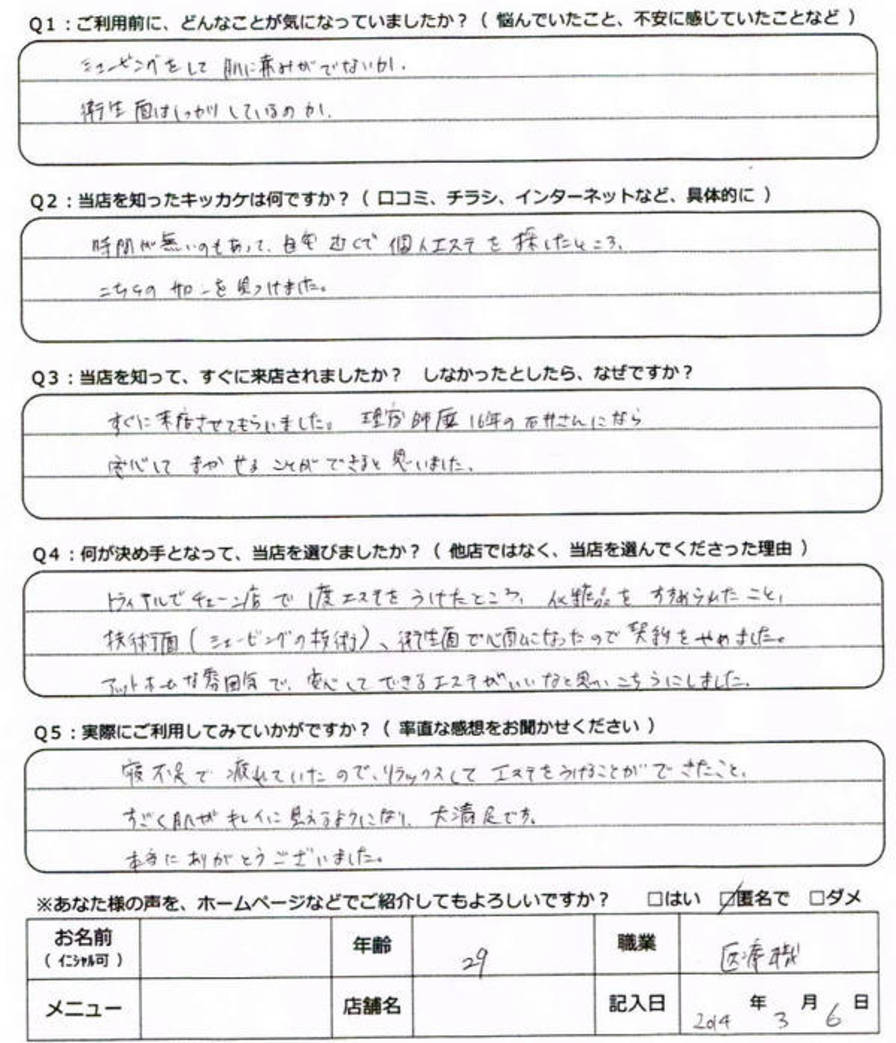 Q1：ご利用前に、どんなことが気になっていましたか？（ 悩んでいたこと、不安に感じていたことなど ）
シェービングをして 肌に赤みがでないか。
衛生面はしっかりしているのか。
Q2：当店を知ったキッカケは何ですか？（ 口コミ、チラシ、インターネットなど、具体的に ）
時間が無いのもあって、自宅近くで 個人エステを探したところ、
こちらの サロンを見つけました。
Q3：当店を知って、すぐに来店されましたか？ しなかったとしたら、なぜですか？
すぐに来店させてもらいました。 理容師歴16年の石井さんになら
安心して まかせることができると思いました。
Q4：何が決め手となって、当店を選びましたか？（ 他店ではなく、当店を選んでくださった理由 ）
トライアルでチェーン店で1度エステをうけたところ、化粧品をすすめられたこと、
技術面（シェービングの技術）、衛生面で心配になったので契約をやめました。
アットホームな雰囲気で、安心してできるエステがいいなと思い、こちらにしました。
Q5：実際にご利用してみていかがですか？（ 率直な感想をお聞かせください ）
寝不足で疲れていたので、リラックスして エステをうけることができたこと、
すごく肌がキレイに見えるようになり、大満足です。
本当にありがとうございました。
※あなた様の声を、ホームページなどでご紹介してもよろしいですか？ □はい ☑匿名で □ダメ
お名前 年齢 29 職業 医療職
（ イニシャル可 ）
メニュー 店舗名 記入日 2014年3月6日